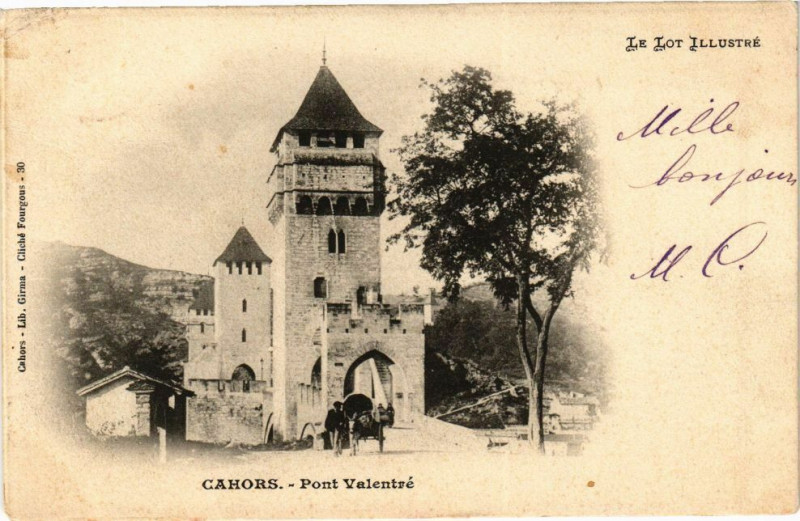 LE LOT ILLUSTRÉ
Mille
bonjours
M. C.
Cahors - Lib. Girma - Cliché Fourgous - 30
CAHORS. - Pont Valentré